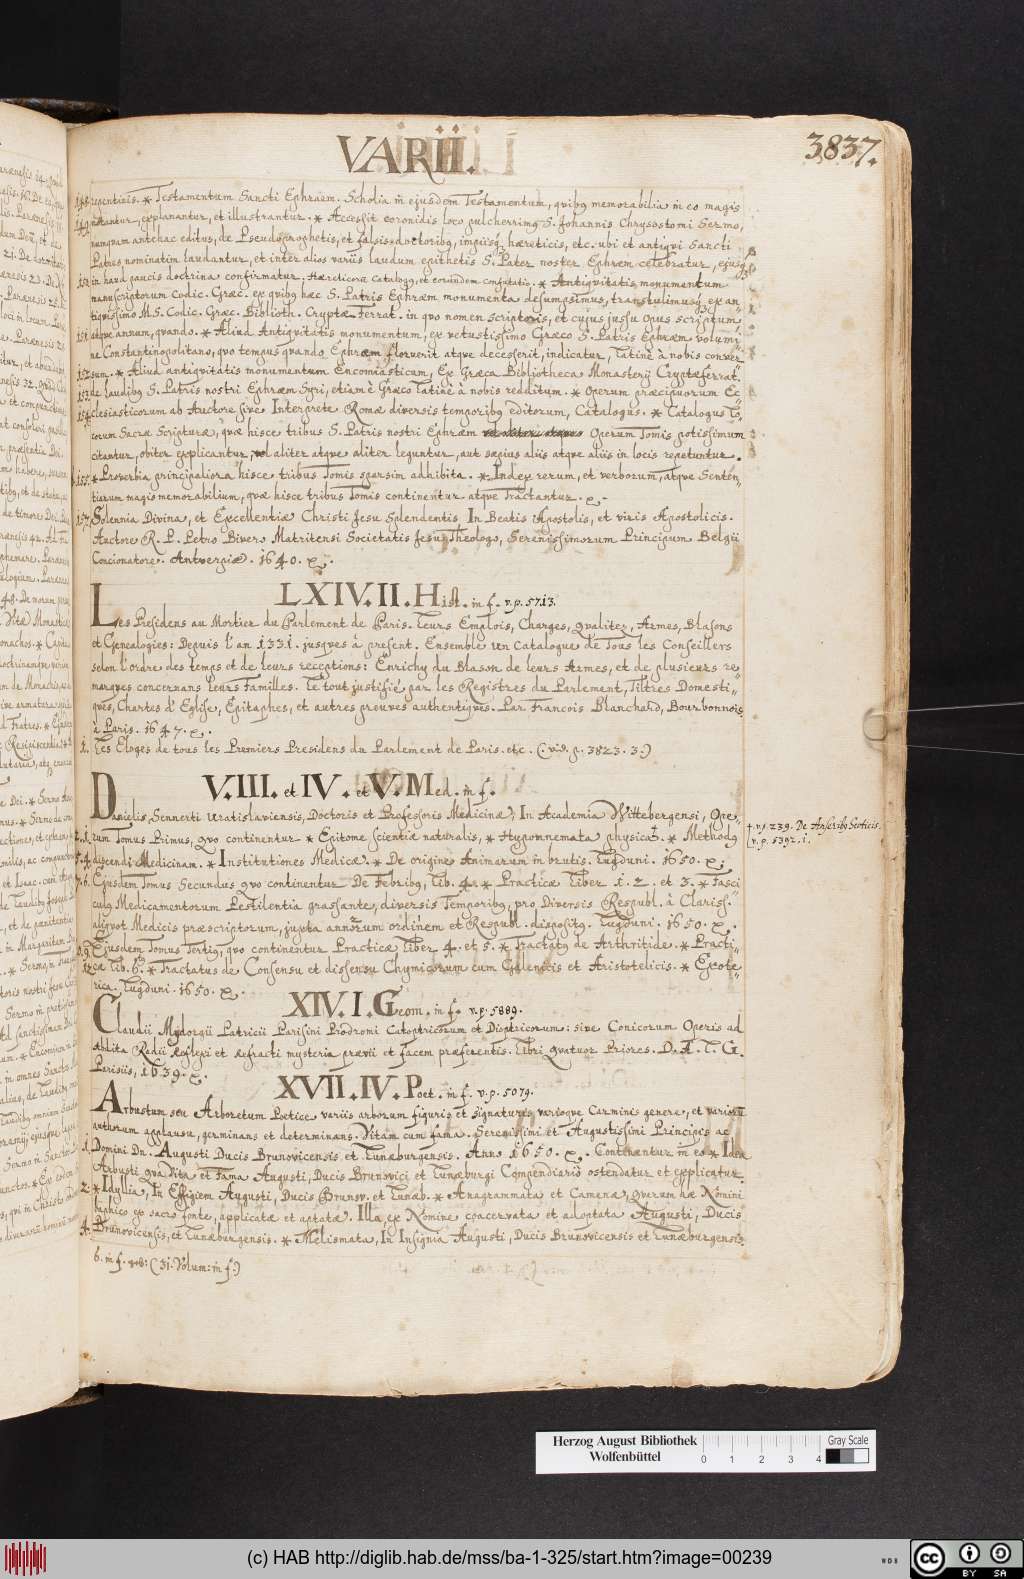 VARII.
3837.
repentinis. * Testamentum Sancti Ephraem. Scholia in ejusdem Testamentum, qvibq memorabilia in eo magis
notantur, explanantur, et illustrantur. * Accessit coronidis loco pulcherrimq S. Johannis Chrysostomi Sermo,
nunqvam antehac editus, de Pseudoprophetis, et falsis doctoribq, impiisq hæreticis, etc. ubi et antiqvi Sancti
Patres nominatim laudantur, et inter alios variis laudum epithetis S. Pater noster Ephræm celebratur, ejusq
in haud paucis doctrina confirmatur. Hæreticorū Catalogq, et eorundem confutatio. * Antiqvitatis monumentum
manuscriptorum Codic. Græc. ex qvibq hæc S. Patris Ephræm monumenta desumpsimus, transtulimusq ex an
tiqvissimo M.S. Codic. Græc. Biblioth. Cryptæ Ferrat. in qvo nomen scriptoris, et cujus jussu Opus scriptum
atqve annum, qvando. * Aliud Antiqvitatis monumentum, ex vetustissimo Græco S. Patris Ephræm volumi
ne Constantinopolitano, qvo tempus qvando Ephræm floruerit atqve decesserit, indicatur, Latinè à nobis conver
sum. * Aliud antiqvitatis monumentum Encomiasticum, Ex Græca Bibliotheca Monasterij Cryptæferrat.
de laudibq S. Patris nostri Ephræm Syri, etiam è Græco Latinè à nobis redditum. * Operum præcipuorum Ec
clesiasticorum ab Auctore sive Interprete Romæ diversis temporibq editorum, Catalogus. * Catalogus Lo
corum Sacræ Scripturæ, qvæ hisce tribus S. Patris nostri Ephræm Operum Tomis potissimum
citantur, obiter explicantur, vel aliter atqve aliter leguntur, aut sæpius aliis atqve aliis in locis repetuntur.
* Proverbia principaliora hisce tribus Tomis sparsim adhibita. * Index rerum, et verborum, atqve Senten
tiarum magis memorabilium, qvæ hisce tribus Tomis continentur atqve Tractantur.
Solennia Divina, et Excellentiæ Christi Jesu Splendentis In Beatis Apostolis, et viris Apostolicis.
Auctore R. P. Petro Bivero Matritensi Societatis Jesu Theologo, Serenissimorum Principum Belgii
Concionatore. Antverpiæ. 1640.
LXIV. II. Hist. in f. v. p. 5713.
Les Presidens au Mortier du Parlement de Paris. Leurs Emplois, Charges, qvalitez, Armes, Blasons
et Genealogies: Depuis l'an 1331. jusqves à present. Ensemble un Catalogue de Tous les Conseillers
selon l'ordre des temps et de leurs receptions: Enrichy du Blason de leurs Armes, et de plusieurs re
marqves concernans leurs Familles. Le tout justifié par les Registres du Parlement, Tiltres Domesti
qves, Chartes d'Eglise, Epitaphes, et autres preuves authentiqves. Par Francois Blanchard, Bourbonnois
à Paris. 1647.
1. Les Eloges de tous les Premiers Presidens du Parlement de Paris. etc. (: vid. p. 3823. 3.)
V. III. et IV. et V. Med. in f.
Danielis Sennerti Uratislaviensis, Doctoris et Professoris Medicinæ, In Academia Wittebergensi, Ope
rum Tomus Primus, qvo continentur * Epitome scientiæ naturalis, * Hypomnemata physica. * Methodq
discendi Medicinam. * Institutiones Medicæ. * De origine Animarum in brutis. Lugduni. 1650.
Ejusdem Tomus Secundus qvo continentur De Febribq, Lib. 4. * Practicæ Liber 1. 2. et 3. * Fasci
culq Medicamentorum Pestilentia grassante, diversis Temporibq, pro Diversis Respubl. à Clariss.
aliqvot Medicis præscriptorum, juxta annorum ordinem et Respubl. dispositq. Lugduni. 1650.
Ejusdem Tomus Tertiq, qvo continentur Practicæ Liber 4. et 5. * Tractatq de Arthritide. * Practi
cæ Lib. 6. * Tractatus de Consensu et dissensu Chymicorum cum Galenicis et Aristotelicis. * Exote
rica. Lugduni. 1650.
† v. p. 239. De Anseribq Scoticis.
v. p. 5392. 1.
XIV. I. Geom. in f. v. p. 5889.
Claudii Mydorgii Patricii Parisini Prodromi Catoptricorum et Dioptricorum: sive Conicorum Operis ad
abdita Radii reflexi et refracti mysteria prævii et facem præferentis. Libri qvatuor Priores. D. A. L. G.
Parisiis, 1639.
XVII. IV. Poet. in f. v. p. 5079.
Arbustum seu Arboretum Poetice variis arborum figuris et signaturis varioqve Carminis genere, et variorū
authorum applausu, germinans et determinans. Vitam cum fama. Serenissimi et Augustissimi Principis ac
Domini Dn. Augusti Ducis Brunovicensis et Lunæburgensis. Anno 1650. Continentur in eo * Idea
Arbusti qva Vita et Fama Augusti, Ducis Brunovici et Lunæburgi Compendiario ostendatur et explicatur.
2. * Idyllia, In Effigiem Augusti, Ducis Brunsv. et Lunæb. * Anagrammata et Camenæ, qvarum hæ Nomini
taphico ex sacro fonte, applicatæ et aptatæ. Illa ex Nomine coacervata et adoptata Augusti, Ducis
4. Brunovicensis, et Lunæburgensis. * Melismata, In Insignia Augusti, Ducis Brunovicensis et Lunæburgensis
6. in f. (: 31. Volum: in f.)
Herzog August Bibliothek
Wolfenbüttel
0 1 2 3 4
Gray Scale
(c) HAB http://diglib.hab.de/mss/ba-1-325/start.htm?image=00239
WDB
cc BY SA